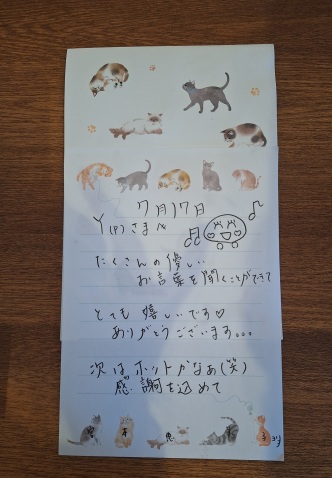 7月17日
Y(P)さまへ
たくさんの優しい
お言葉を聞くことができて
とても嬉しいです♡
ありがとうございます。。。
次はホットかなぁ(笑)
感謝を込めて